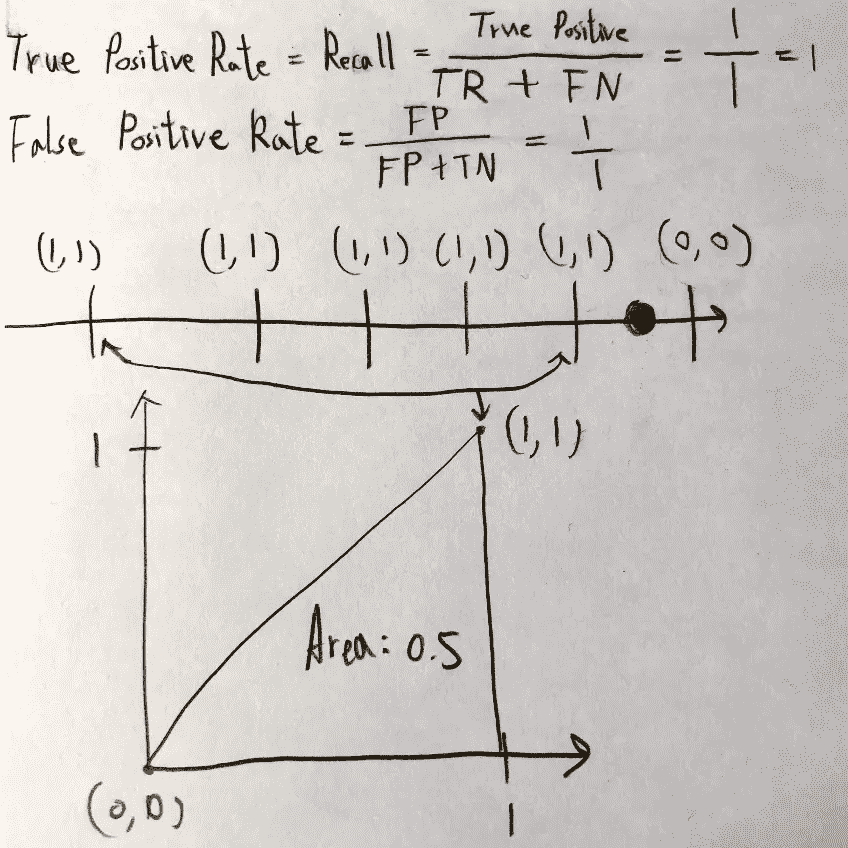 True Positive Rate = Recall = True Positive / TR + FN = 1 / 1 = 1
False Positive Rate = FP / FP + TN = 1 / 1
(1,1) (1,1) (1,1) (1,1) (1,1) (0,0)
1 (1,1)
Area: 0.5
(0,0) 1